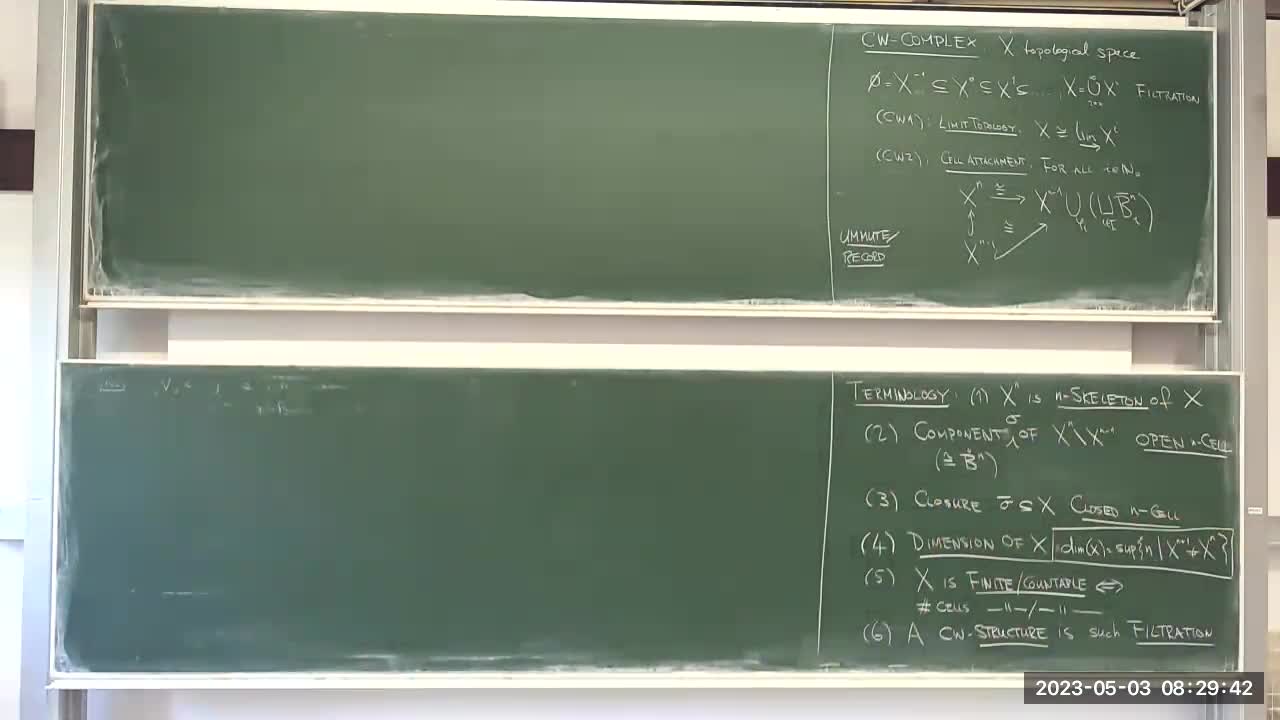 CW-COMPLEX. X topological space
∅ = X⁻¹ ⊆ X⁰ ⊆ X¹ ⊆ ..... , X = ⋃ Xⁱ FILTRATION
(CW1): LIMIT TOPOLOGY. X ≅ lim Xⁱ
(CW2): CELL ATTACHMENT. FOR ALL i∈ℕ₀
Xⁿ ≅→ Xⁿ⁻¹ ∪ (⊔ B̄ⁿ)
≅
Xⁿ⁻¹
UNMUTE/
RECORD
TERMINOLOGY. (1) Xⁿ is n-SKELETON of X
(2) COMPONENT σ OF Xⁿ\Xⁿ⁻¹ OPEN n-CELL
(≅ B̊ⁿ)
(3) CLOSURE σ̄ ⊆ X CLOSED n-CELL
(4) DIMENSION OF X dim(X) = sup{n | Xⁿ⁻¹ ≠ Xⁿ}
(5) X is FINITE/COUNTABLE ⇔
# CELLS —"—/—"—
(6) A CW-STRUCTURE is such FILTRATION
2023-05-03 08:29:42